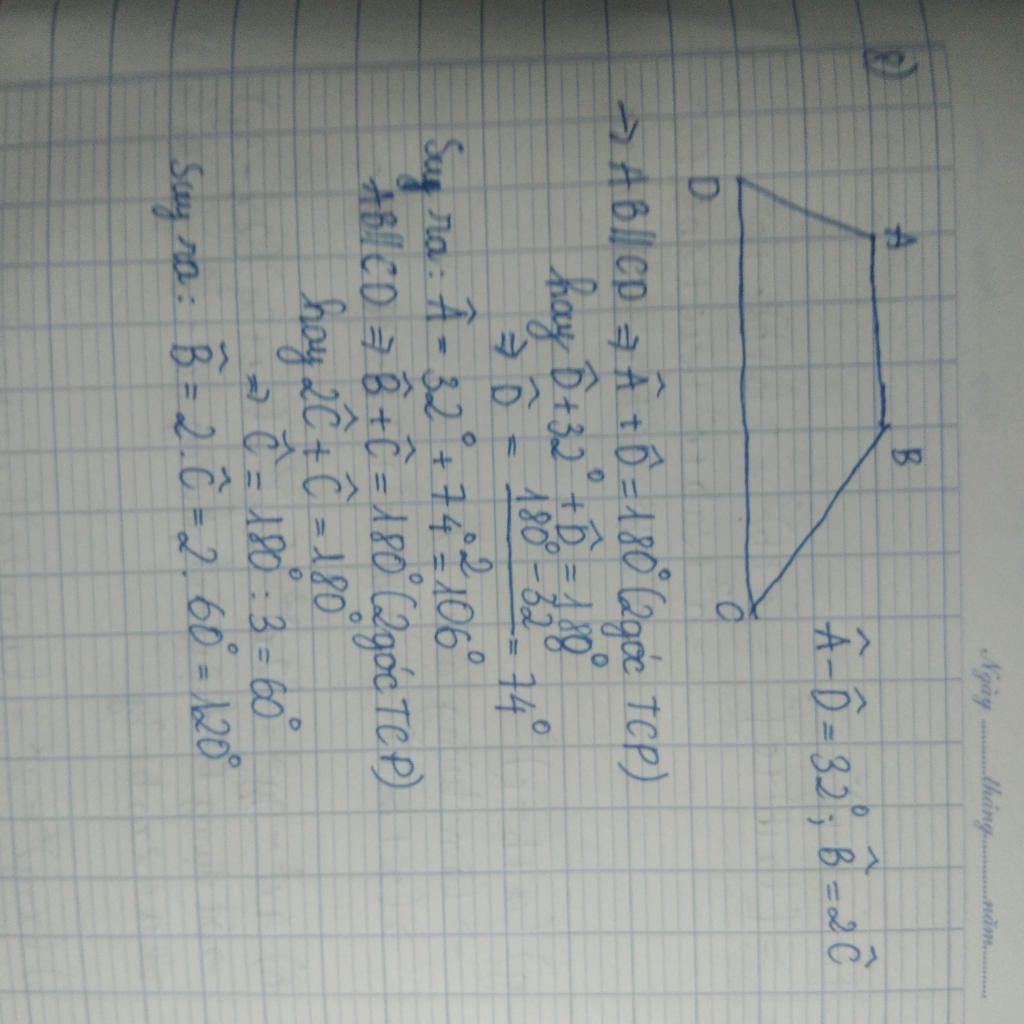 Ngày ........tháng............năm..........
e)
A B
Â - D̂ = 32°; B̂ = 2Ĉ
D C
→ AB // CD ⇒ Â + D̂ = 180° (2 góc TCP)
hay D̂ + 32° + D̂ = 180°
⇒ D̂ = (180° - 32°)/2 = 74°
Suy ra: Â = 32° + 74° = 106°
AB // CD ⇒ B̂ + Ĉ = 180° (2 góc TCP)
hay 2Ĉ + Ĉ = 180°
⇒ Ĉ = 180° : 3 = 60°
Suy ra: B̂ = 2.Ĉ = 2. 60° = 120°